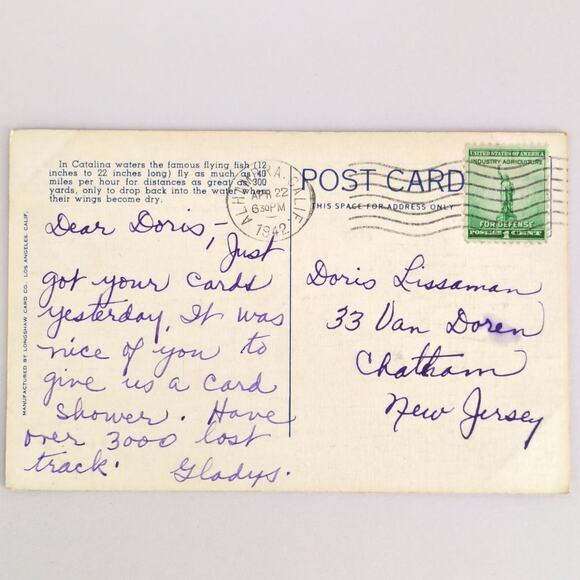 In Catalina waters the famous flying fish (12
inches to 22 inches long) fly as much as 40
miles per hour for distances as great as 300
yards, only to drop back into the water when
their wings become dry.
POST CARD
THIS SPACE FOR ADDRESS ONLY
ALHAMBRA, CALIF.
APR 22
630PM
1942
UNITED STATES OF AMERICA
INDUSTRY AGRICULTURE
FOR DEFENSE
POSTAGE 1 CENT
MANUFACTURED BY LONGSHAW CARD CO., LOS ANGELES, CALIF.
Dear Doris -, Just
got your cards
yesterday, It was
nice of you to
give us a card
shower. Have
over 3000 lost
track. Gladys.
Doris Lissaman
33 Van Doren
Chatham
New Jersey